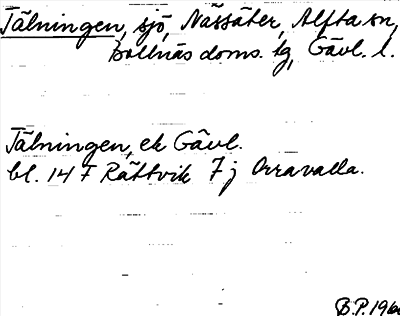 Tälningen, sjö, Nässäter, Alfta sn,
Bollnäs doms. tg, Gävl. l.
Tälningen, ek Gävl.
bl. 14 F Rättvik 7 j Orravalla.
B.P. 196